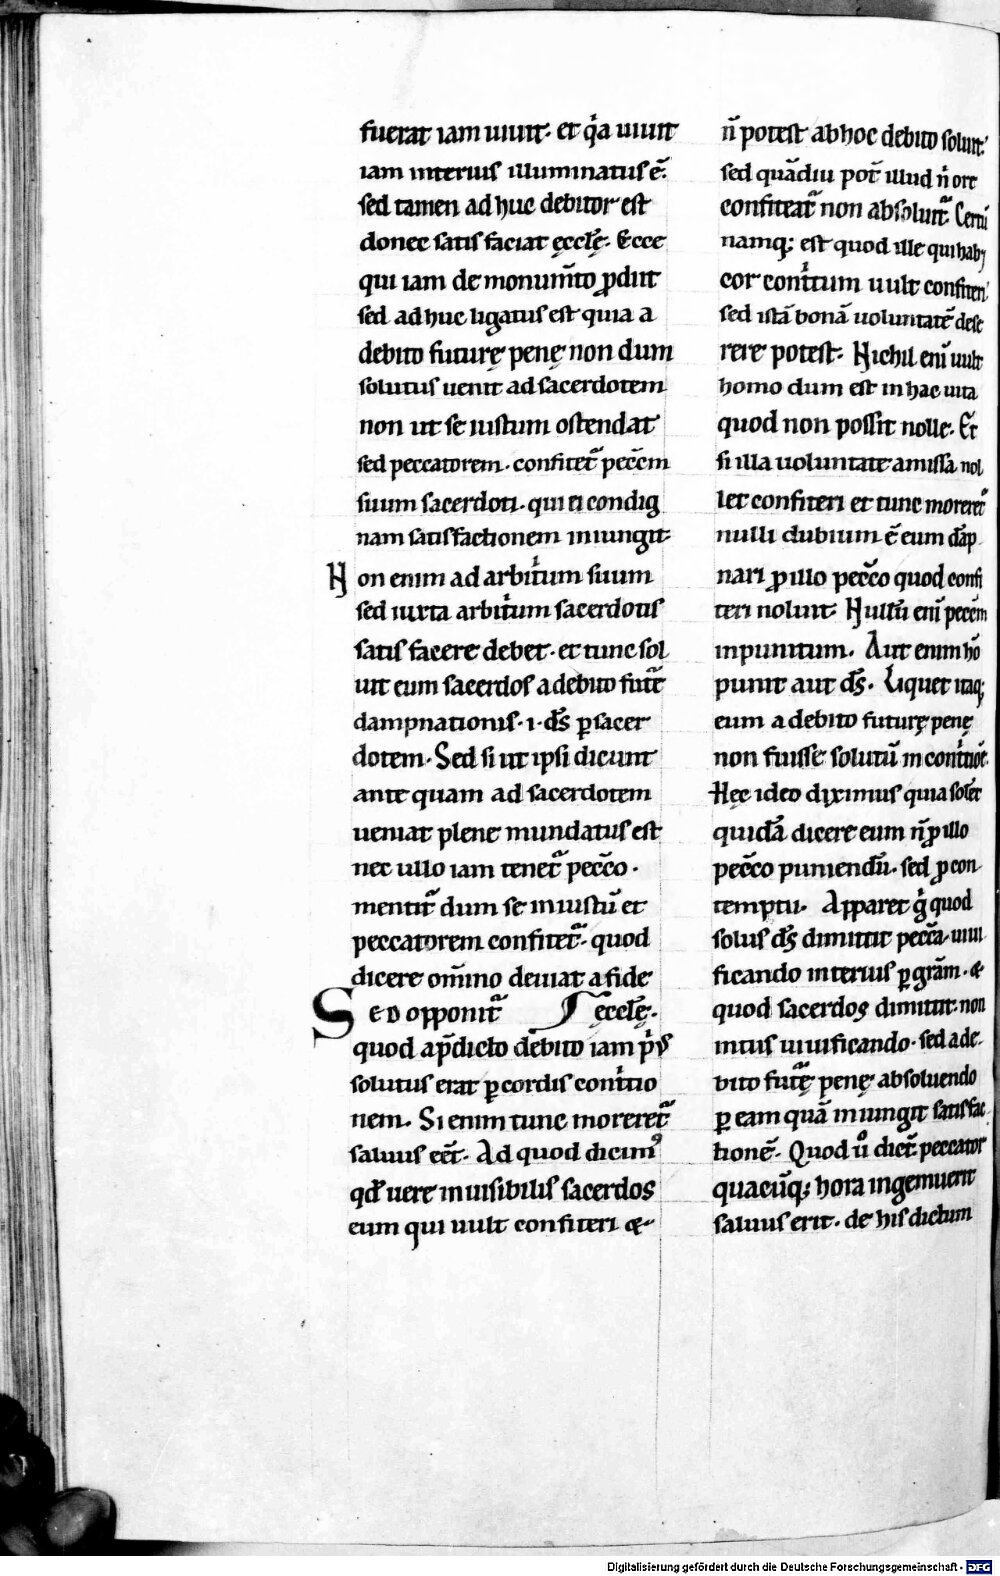 fuerat iam uiuit. et q̇a uiuit
iam interius illuminatus ē.
sed tamen ad huc debitor est
donec satis faciat ęcclę̄. Ecce
qui iam de monum̄to ꝓdiit
sed ad huc ligatus est quia a
debito futurę penę non dum
solutus uenit ad sacerdotem
non ut se iustum ostendat
sed peccatorem. confitet᷑ pecc̄m
suum sacerdoti. qui ei condig
nam satisfactionem iniungit.
Non enim ad arbitͥum suum
sed iuxta arbitͥum sacerdotis
satis facere debet. et tunc sol
uit eum sacerdos a debito futu᷑e
dampnationis .i. d̄s ꝑ sacer
dotem. Sed si ut ipsi dicunt
ante quam ad sacerdotem
ueniat plene mundatus est
nec ullo iam tenet᷑ pecc̄o.
mentit᷑ dum se iniustū et
peccatorem confitet᷑. quod
dicere om̄ino deuiat a fide
Sed opponit᷑ ęcclę̄.
quod ap̄dicto debito iam pͥus
solutus erat ꝑ cordis contͥtio
nem. Si enim tunc moreret᷑
saluus eēt. Ad quod dicimꝰ
qd̄ uere inuisibilis sacerdos
eum qui uult confiteri &
n̄ potest ab hoc debito soluit.
sed quādiu pot̄ illud n̄ ore
confiteat᷑ non absoluit᷑. Certū
namq; est quod ille qui hab;
cor contͥtum uult confiteri.
sed istā bonā uoluntatē dese
rere potest. Nichil eni̅ uult
homo dum est in hac uita
quod non possit nolle. Et
si illa uoluntate amissa nol
let confiteri et tunc moreret᷑
nulli dubium ē eum dāp
nari ꝓ illo pecc̄o quod confi
teri noluit. Nullū eni̅ pecc̄m
inpunitum. Aut enim hō
punit aut d̄s. Liquet itaq;
eum a debito futurę penę
non fuisse solutū in contͥtiōe.
Hec ideo diximus quia solēt
quidā dicere eum n̄ ꝓ illo
pecc̄o puniendū. sed ꝓ con
temptu. Apparet gͥ quod
solus d̄s dimittit pecc̄a. uiui
ficando interius ꝑ grām. &
quod sacerdos dimittit. non
intus uiuificando. sed a de
bito futu᷑ę penę absoluendo
ꝑ eam quā iniungit satisfac
tionē. Quod uͦ dict̄. peccator
quacūq; hora ingemuerit
saluus erit. de his dictum
Digitalisierung gefördert durch die Deutsche Forschungsgemeinschaft - DFG